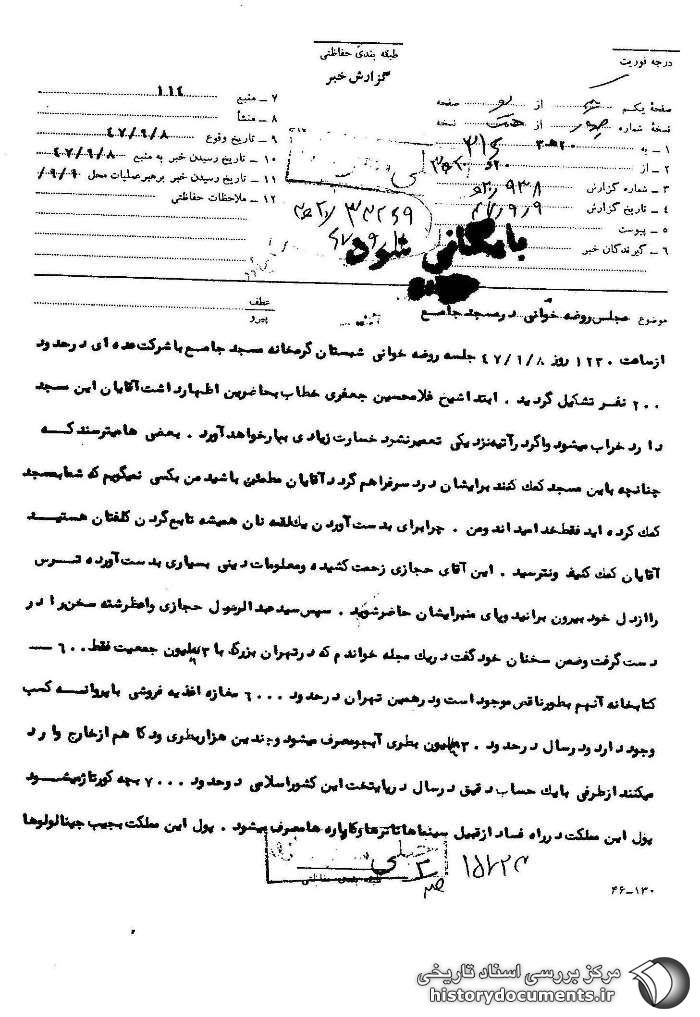 درجه فوریت
طبقه بندی حفاظتی
گزارش خبر
صفحه یکم از دو صفحه
نسخه شماره از نسخه
۱ ـ به ۳۱۶
۲ ـ از
۳ ـ شماره گزارش
۴ ـ تاریخ گزارش ۴۷/۹/۹
۵ ـ پیوست
۶ ـ گیرندگان خبر
۷ ـ منبع ۱۱۴
۸ ـ منشأ
۹ ـ تاریخ وقوع ۴۷/۹/۸
۱۰ ـ تاریخ رسیدن خبر به منبع ۴۷/۹/۸
۱۱ ـ تاریخ رسیدن خبر برهبر عملیات محل ۹/۹/
۱۲ ـ ملاحظات حفاظتی
بایگانی شود
موضوع مجلس روضه خوانی در مسجد جامع
عطف
پیرو
از ساعت ۱۲۳۰ روز ۴۷/۹/۸ جلسه روضه خوانی شبستان گرمخانه مسجد جامع با شرکت عده ای در حدود
۲۰۰ نفر تشکیل گردید . ابتدا شیخ غلامحسین جعفری خطاب بحاضرین اظهار داشت آقایان این مسجد
دارد خراب میشود و اگر در آتیه نزدیکی تعمیر نشرد خسارت زیادی ببار خواهد آورد . بعضی ها میترسند که
چنانچه باین مسجد کمک کنند برایشان درد سر فراهم گردد آقایان مطمئن باشید من بکسی نمیگویم که شما بمسجد
کمک کرده اید فقط خدا میداند و من . چرا برای بدست آوردن یک لقمه نان همیشه تابع گردن کلفتان هستید
آقایان کمک کنید و نترسید . این آقای حجازی زحمت کشیده و معلومات دینی بسیاری بدست آورده ترس
را از دل خود بیرون برانید و پای منبر ایشان حاضر شوید . سپس سید عبدالرسول حجازی واعظ رشته سخن را در
دست گرفت و ضمن سخنان خود گفت در یک مجله خواندم که در تهران بزرگ با ۳ میلیون جمعیت فقط ۶۰۰
کتابخانه آنهم بطور ناقص موجود است و در همین تهران در حدود ۶۰۰۰ مغازه اغذیه فروشی با پروانه کسب
وجود دارد و در سال در حدود ۳۰ میلیون بطری آبجو مصرف میشود و چندین هزار بطری ودکا هم از خارج وارد
میکنند از طرفی با یک حساب دقیق در سال در پایتخت این کشور اسلامی در حدود ۷۰۰۰ بچه کورتاژ میشود
پول این مملکت در راه فساد از قبیل سینماها تاترها و کاباره ها مصرف میشود . پول این مملکت بجیب جینالولوها
طبقه بندی حفاظتی
۴۶ـ۱۳۰
مرکز بررسی اسناد تاریخی
historydocuments.ir